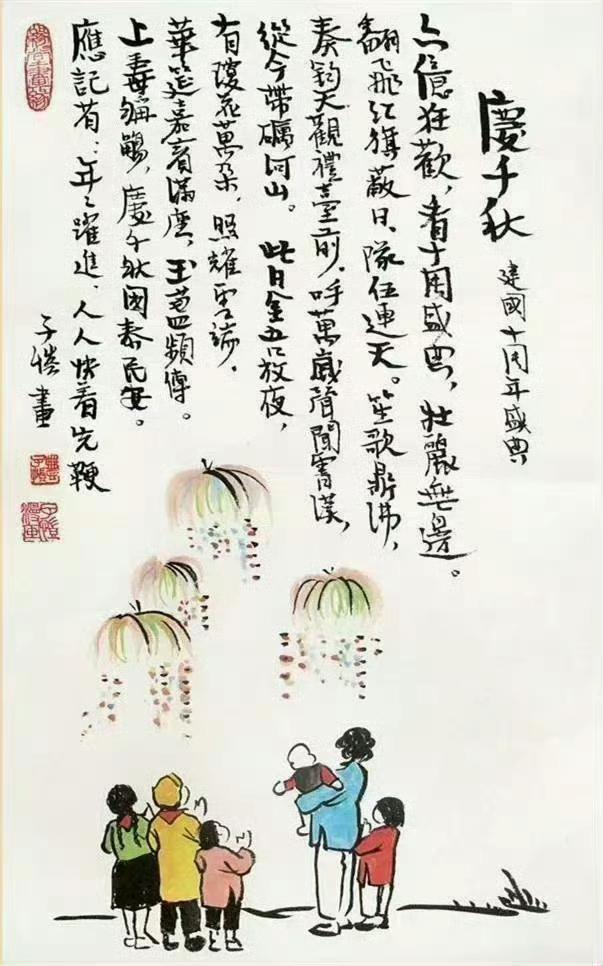 慶千秋
建國十周年盛典
六億狂歡,看十周盛典,壯麗無邊。
翻飛紅旗蔽日,隊伍連天。笙歌鼎沸,
奏鈞天觀禮臺前。呼萬歲聲聞霄漢,
從今帶礪河山。此日金吾放夜,
有瓊花萬朵,照耀雲端。
華筵嘉賓滿座,玉盞頻傳。
上壽稱觴,慶千秋國泰民安。
應記着:年々躍進,人人快着先鞭
子愷畫